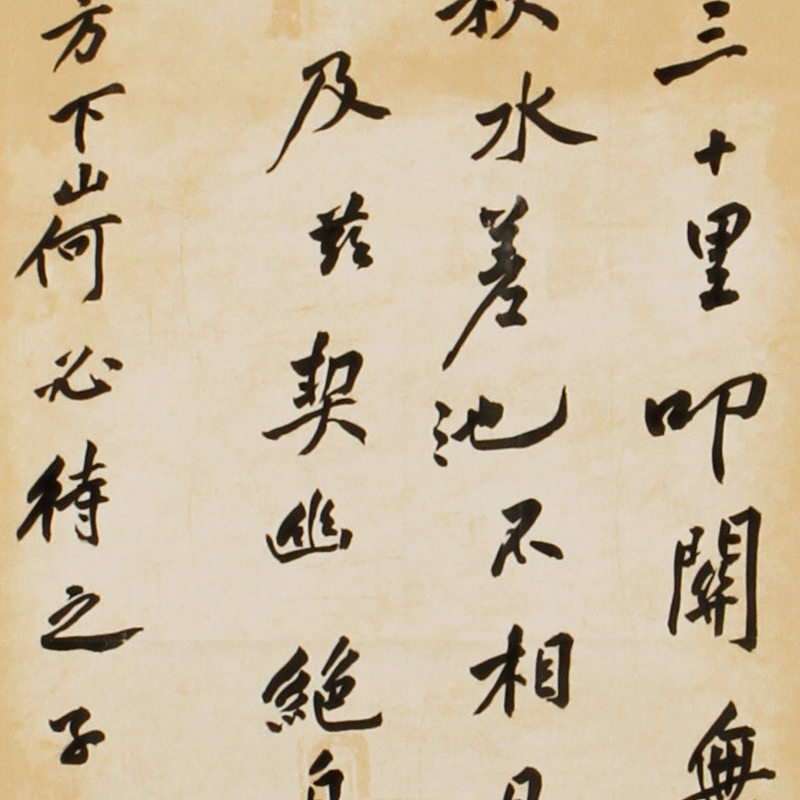 三十里叩關無
秋水差池不相
及茲契幽絶
方下山何必待之子